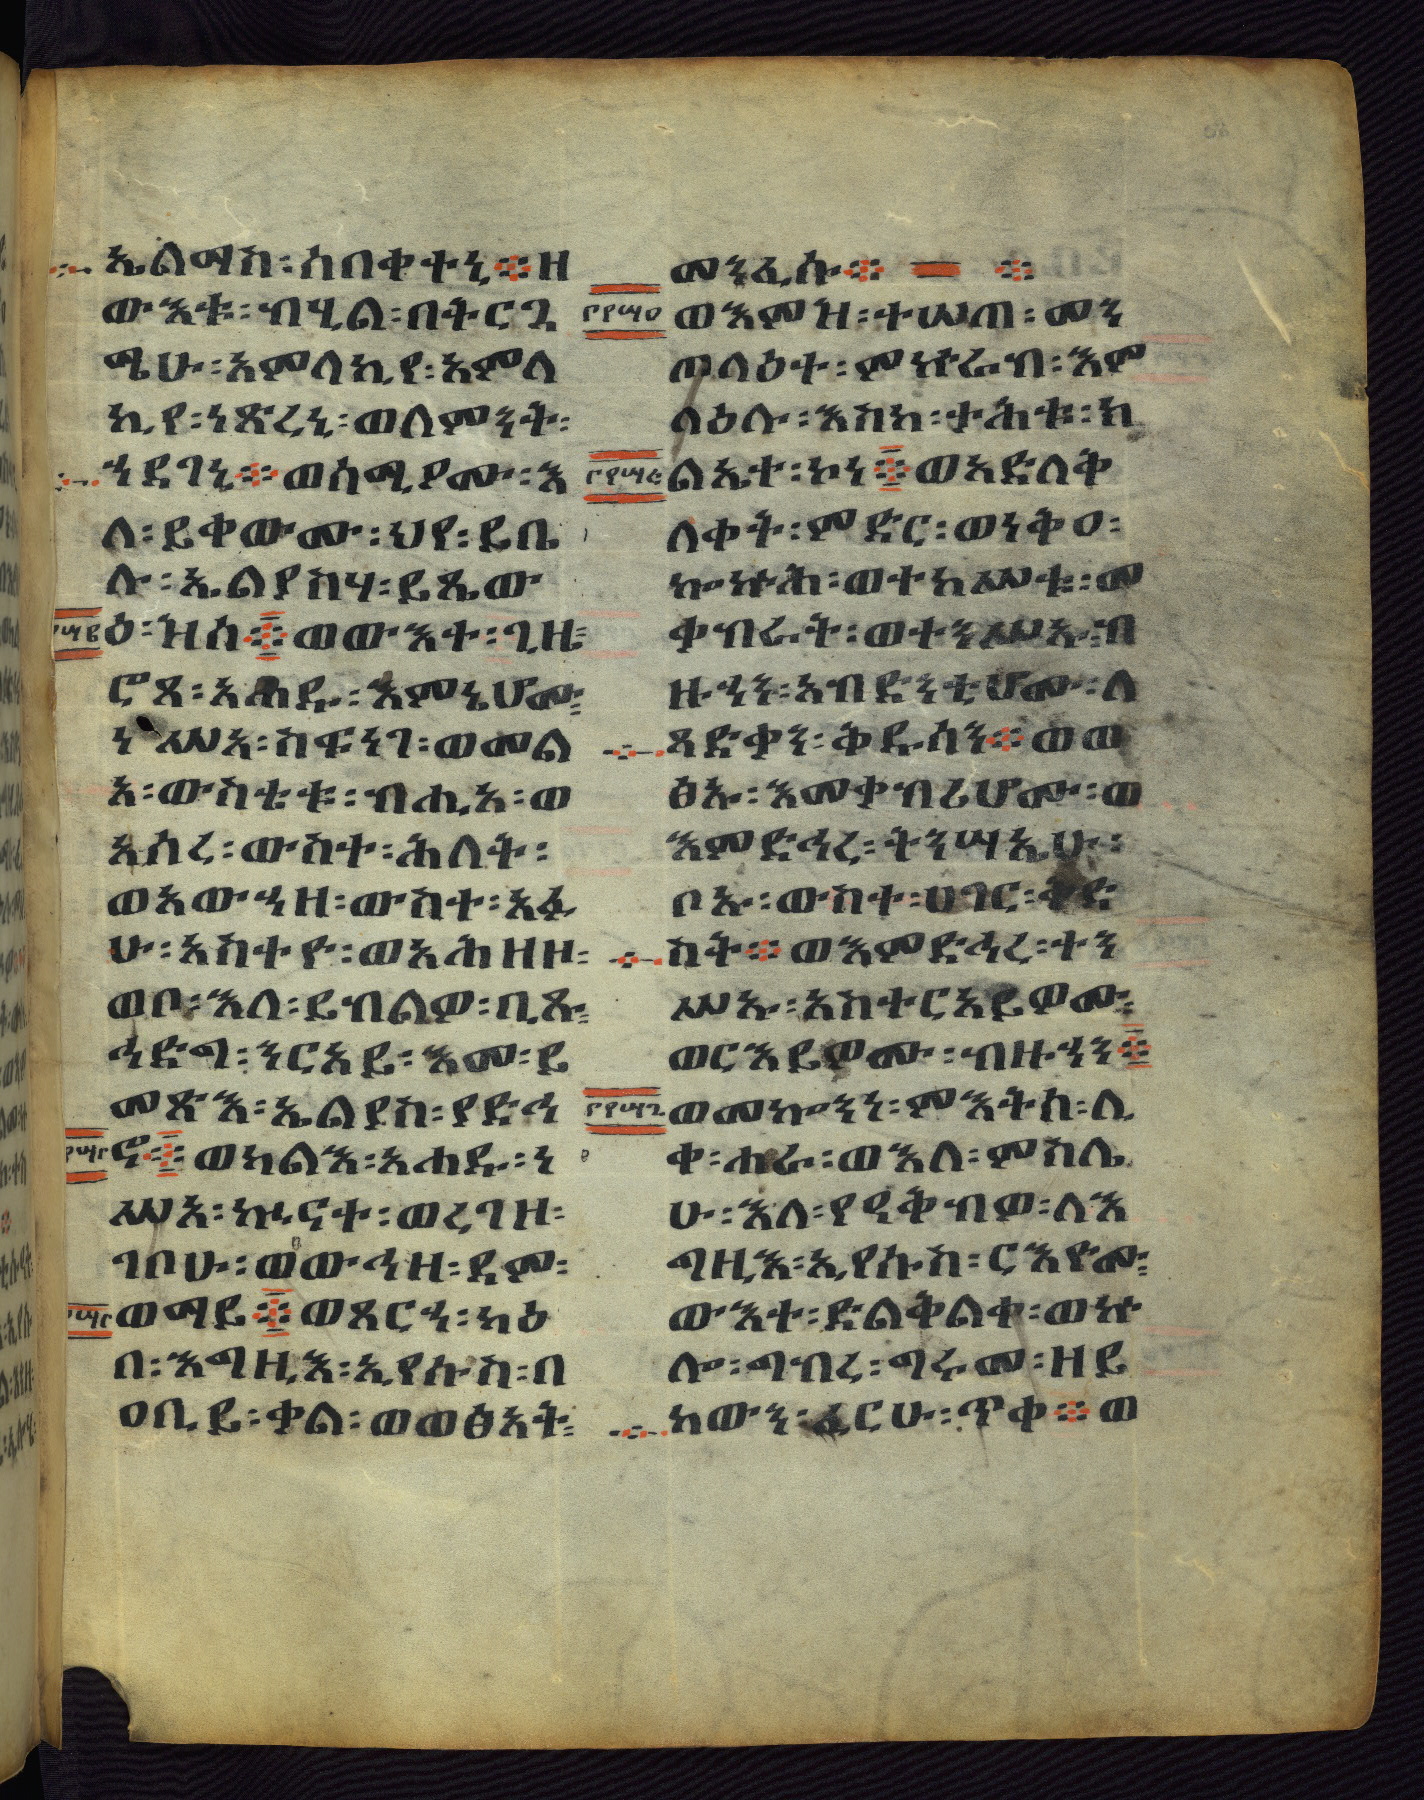 ኤልማስ፡ሰበቀተኒ፨ዘ
ውእቱ፡ብሂል፡በትርጓ
ሜሁ፡አምላኪየ፡አምላ
ኪየ፡ነጽረኒ፡ወለምንት፡
ኀደገኒ፨ወሰሚዖሙ፡እ
ለ፡ይቀውሙ፡ህየ፡ይቤ
ሉ፡ኤልያስሃ፡ይጼው
ዕ፡ዝሰ፨ወውእተ፡ጊዜ፡
ሮጸ፡አሐዱ፡እምኔሆሙ፡
ነሥአ፡ሰፍነገ፡ወመል
አ፡ውስቴቱ፡ብሒአ፡ወ
አሰረ፡ውስተ፡ሕለት፡
ወአውኀዘ፡ውስተ፡አፉ
ሁ፡አስተዮ፡ወአሕዘዘ፡
ወቦ፡እለ፡ይብልዎ፡ቢጹ፡
ኀድግ፡ንርአይ፡እመ፡ይ
መጽእ፡ኤልያስ፡ያድኅ
ኖ፨ወካልእ፡አሐዱ፡ነ
ሥአ፡ኲናተ፡ወረገዘ፡
ገቦሁ፡ወውኅዘ፡ደም፡
ወማይ፨ወጸርኀ፡ካዕ
በ፡እግዚእ፡ኢየሱስ፡በ
ዐቢይ፡ቃል፡ወወፅአት፡
መንፈሱ፨
፲፻፵፬
ወእምዝ፡ተሠጠ፡መን
ጦላዕተ፡ምኵራብ፡እም
ላዕሉ፡እስከ፡ታሕቱ፡ክ
ልኤተ፡ኮነ፨ወአድለቅ
ለቀት፡ምድር፡ወነቅዐ፡
ኰኵሕ፡ወተከሥቱ፡መ
ቃብራት፡ወተንሥኡ፡ብ
ዙኃነ፡አብድንቲሆሙ፡ለ
ጻድቃን፡ቅዱሳን፨ወወ
ፅኡ፡እመቃብሪሆሙ፡ወ
እምድኅረ፡ትንሣኤሁ፡
ቦኡ፡ውስተ፡ሀገር፡ቅድ
ስት፨ወእምድኅረ፡ተን
ሥኡ፡አስተርአይዎሙ፡
ወርእይዎሙ፡ብዙኃን፨
ወመኰንነ፡ምእትሰ፡ሊ
ቀ፡ሐራ፡ወእለ፡ምስሌ
ሁ፡እለ፡የዐቅብዎ፡ለእ
ግዚእ፡ኢየሱስ፡ርእዮሙ፡
ውእተ፡ድልቅልቀ፡ወኵ
ሎ፡ግብረ፡ግሩመ፡ዘይ
ከውን፡ፈርሁ፡ጥቀ፨ወ